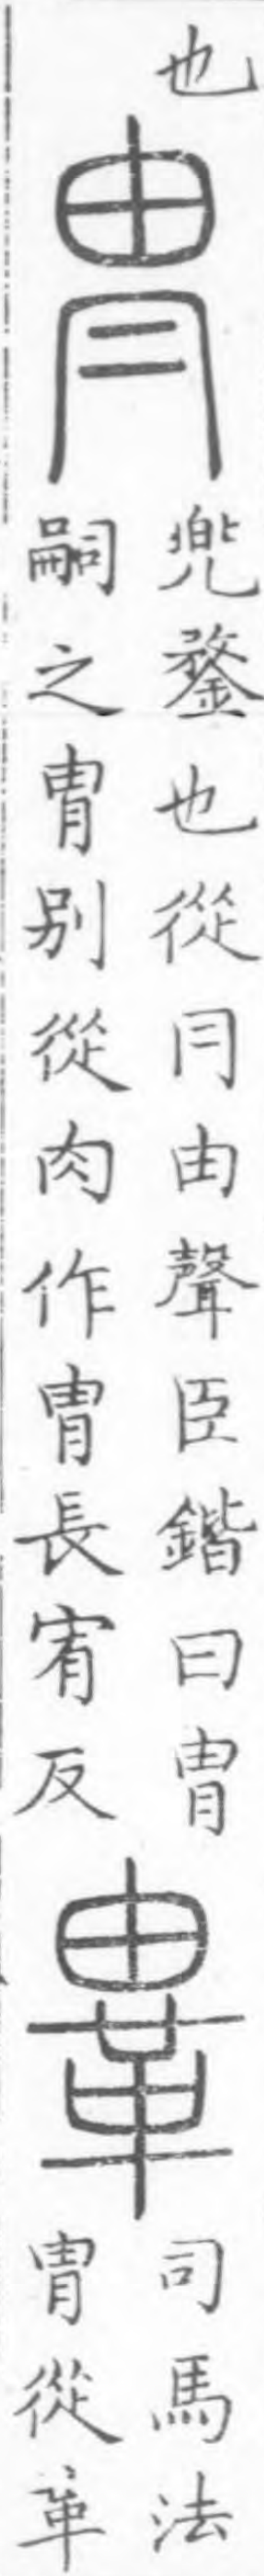 也
冑
兜鍪也從冃由聲臣鍇曰冑
嗣之冑別從肉作胄長宥反
𩊄
司馬法
冑從革